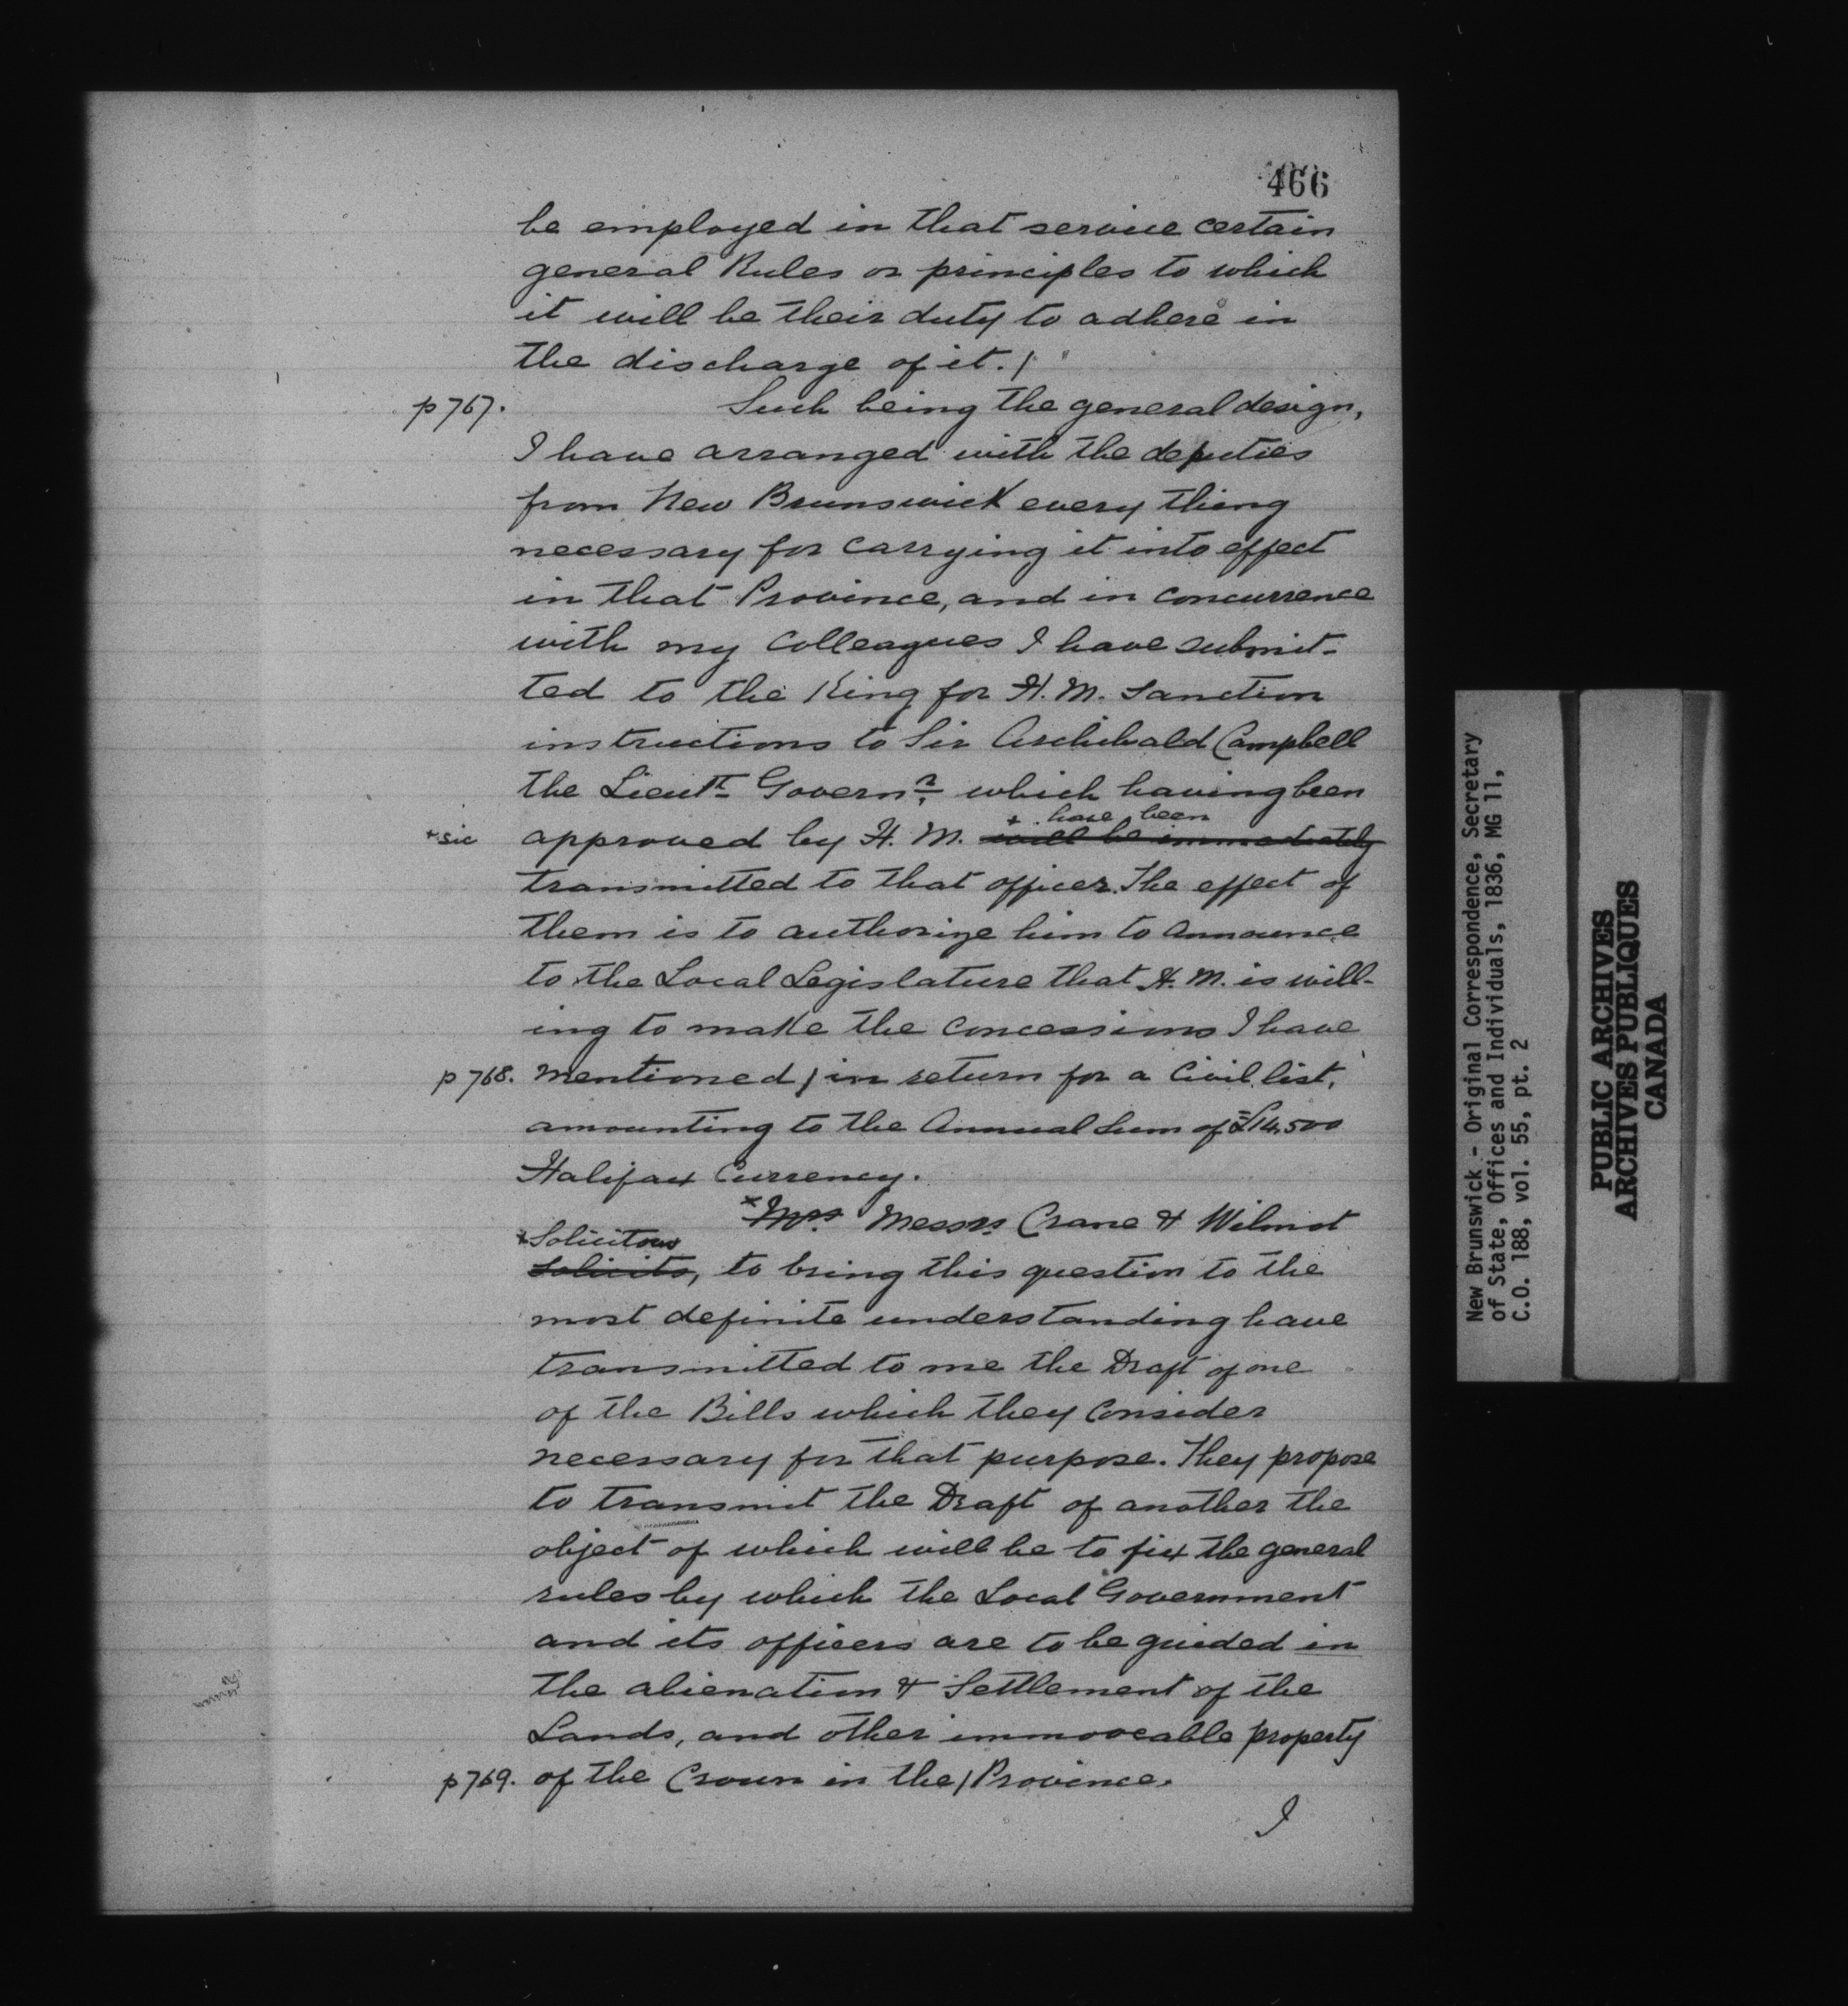 466
be employed in that service certain
general Rules or principles to which
it will be their duty to adhere in
the discharge of it. /
p 767. Such being the general design,
I have arranged with the deputies
from New Brunswick every thing
necessary for carrying it into effect
in that Province, and in concurrence
with my Colleagues I have submit-
ted to the King for H. M. Sanction
instructions to Sir Archibald Campbell
the Lieut Governr which having been
+ have been
+ sic approved by H. M. will be immediately
transmitted to that officer. The effect of
them is to authorize him to announce
to the Local Legislature that H. M. is will-
ing to make the concessions I have
p 768. mentioned / in return for a Civil list,
amounting to the Annual Sum of £14,500
Halifax Currency.
x Mrs Messrs. Crane & Wilmot
x Solicitous
solicits, to bring this question to the
most definite understanding have
transmitted to me the Draft of one
of the Bills which they Consider
necessary for that purpose. They propose
to transmit the Draft of another the
object of which will be to fix the general
rules by which the Local Government
and its officers are to be guided in
the alienation & Settlement of the
Lands, and other immoveable property
p 769. of the Crown in the / Province.
I
New Brunswick - Original Correspondence, Secretary
of State, Offices and Individuals, 1836, MG 11,
C.O. 188, vol. 55, pt. 2
PUBLIC ARCHIVES
ARCHIVES PUBLIQUES
CANADA